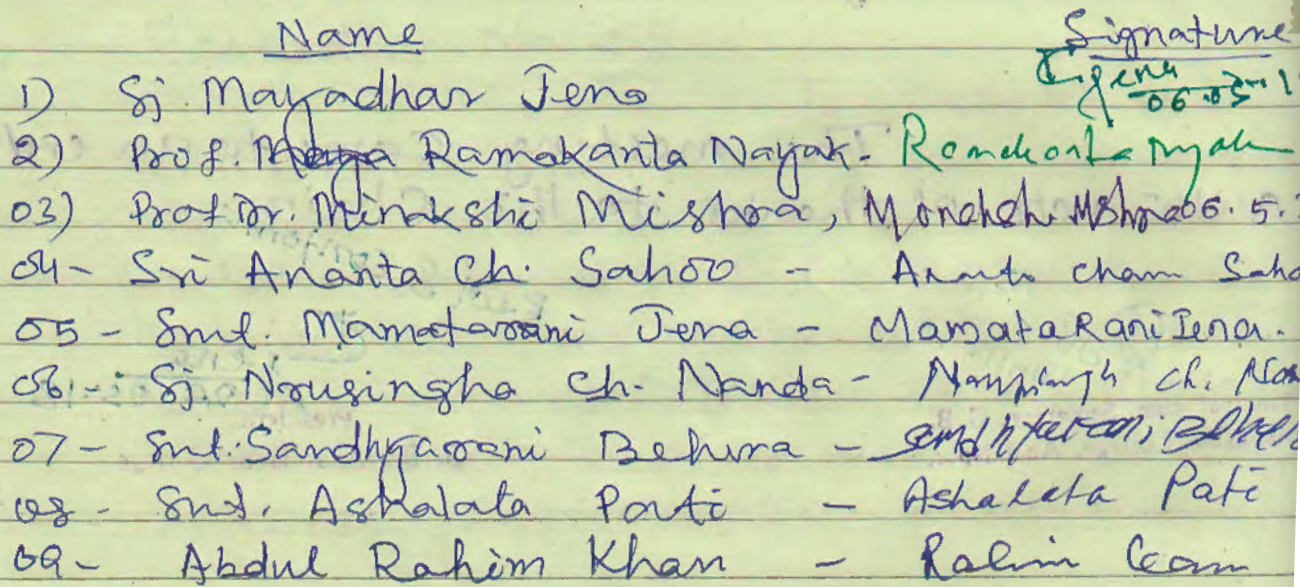 Name Signature
1) Sj. Mayadhar Jena 06.05.1
2) Prof. Ramakanta Nayak - Ramakanta Nayak
03) Prof. Dr. Minakshi Mishra, Minakshi Mishra 06.5.
04 - Sri Ananta Ch. Sahoo - Ananta Saho
05 - Smt. Mamatarani Jena - Mamata Rani Jena.
06 - Sj. Nrusingha Ch. Nanda - Nrusingh Ch. Nan
07 - Smt. Sandhyarani Behura - Sandhyarani Behu
08 - Smt. Ashalata Pati - Ashalata Pati
09 - Abdul Rahim Khan - Rahim